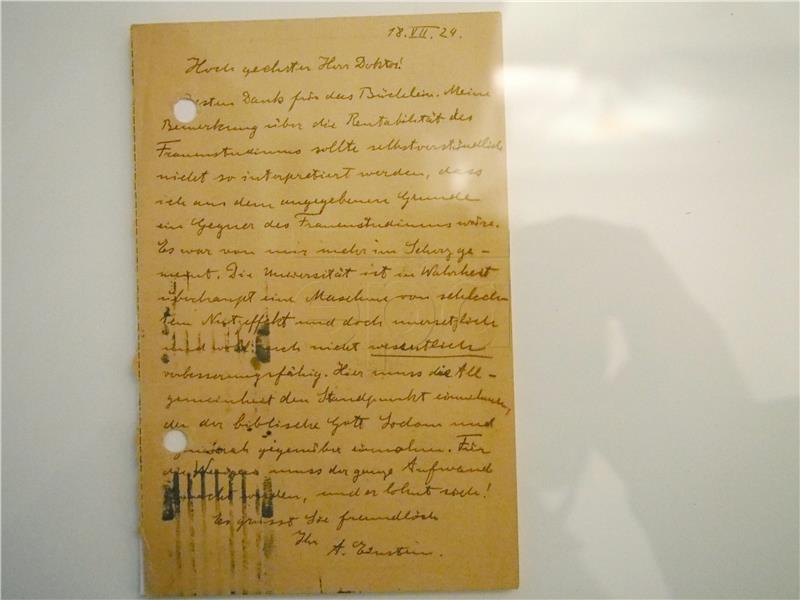 18.VII.24.
Hochgeehrter Herr Doktor!
Besten Dank für das Büchlein. Meine
Bemerkung über die Rentabilität des
Frauenstudiums sollte selbstverständlich
nicht so interpretiert werden, dass
ich aus dem angegebenen Grunde
ein Gegner des Frauenstudiums wäre.
Es war von mir mehr im Scherz ge-
meint. Die Universität ist in Wahrheit
überhaupt eine Maschine von schlech-
tem Nutzeffekt und doch unersetzlich
und wohl auch nicht wesentlich
verbesserungsfähig. Hier muss die All-
gemeinheit den Standpunkt einnehmen,
den der biblische Gott Sodom und
Gomorah gegenüber einnahm. Für
die Wenigen muss der ganze Aufwand
gemacht werden, und er lohnt sich!
Es grüsst Sie freundlich
Ihr
A. Einstein.